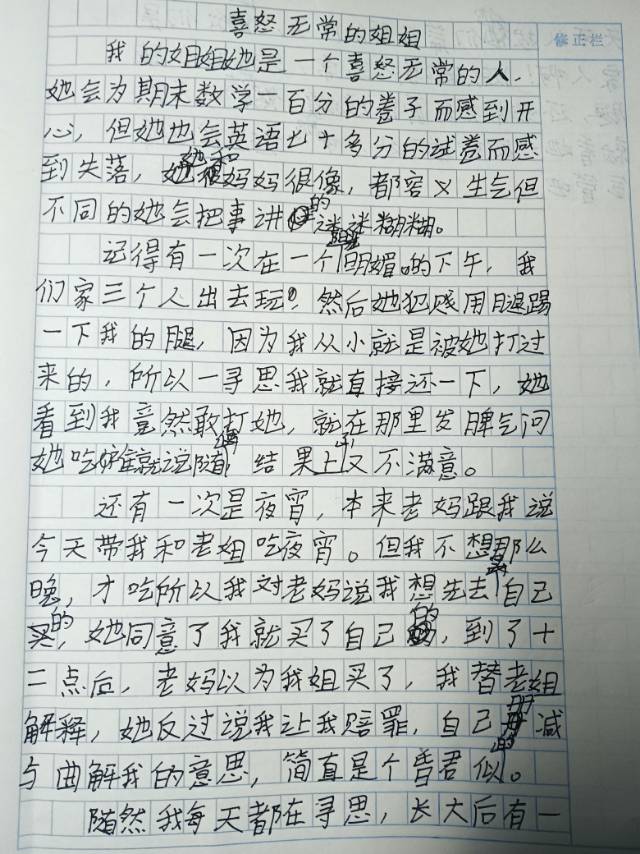 喜怒无常的姐姐
修正栏
我的姐姐她是一个喜怒无常的人,
她会为期末数学一百分的卷子而感到开
心,但她也会英语七十多分的试卷而感
到失落,她和妈妈很像,都容义生气但
不同的她会把事讲的迷迷糊糊。
记得有一次在一个阳明媚的下午,我
们家三个人出去玩,然后她犯贱用腿踢
一下我的腿,因为我从小就是被她打过
来的,所以一寻思我就直接还一下,她
看到我竟然敢打她,就在那里发脾气问
她吃啥就说随便 结果上又不满意。
还有一次是夜宵,本来老妈跟我说
今天带我和老姐吃夜宵。但我不想那么
晚,才吃所以我对老妈说我想先去自己
买的,她同意了我就买了自己的,到了十
二点后,老妈以为我姐买了,我替老姐
解释,她反过说我让我赔罪,自己 减
与曲解我的意思,简直是个昏君似的。
随然我每天都在寻思,长大后有一